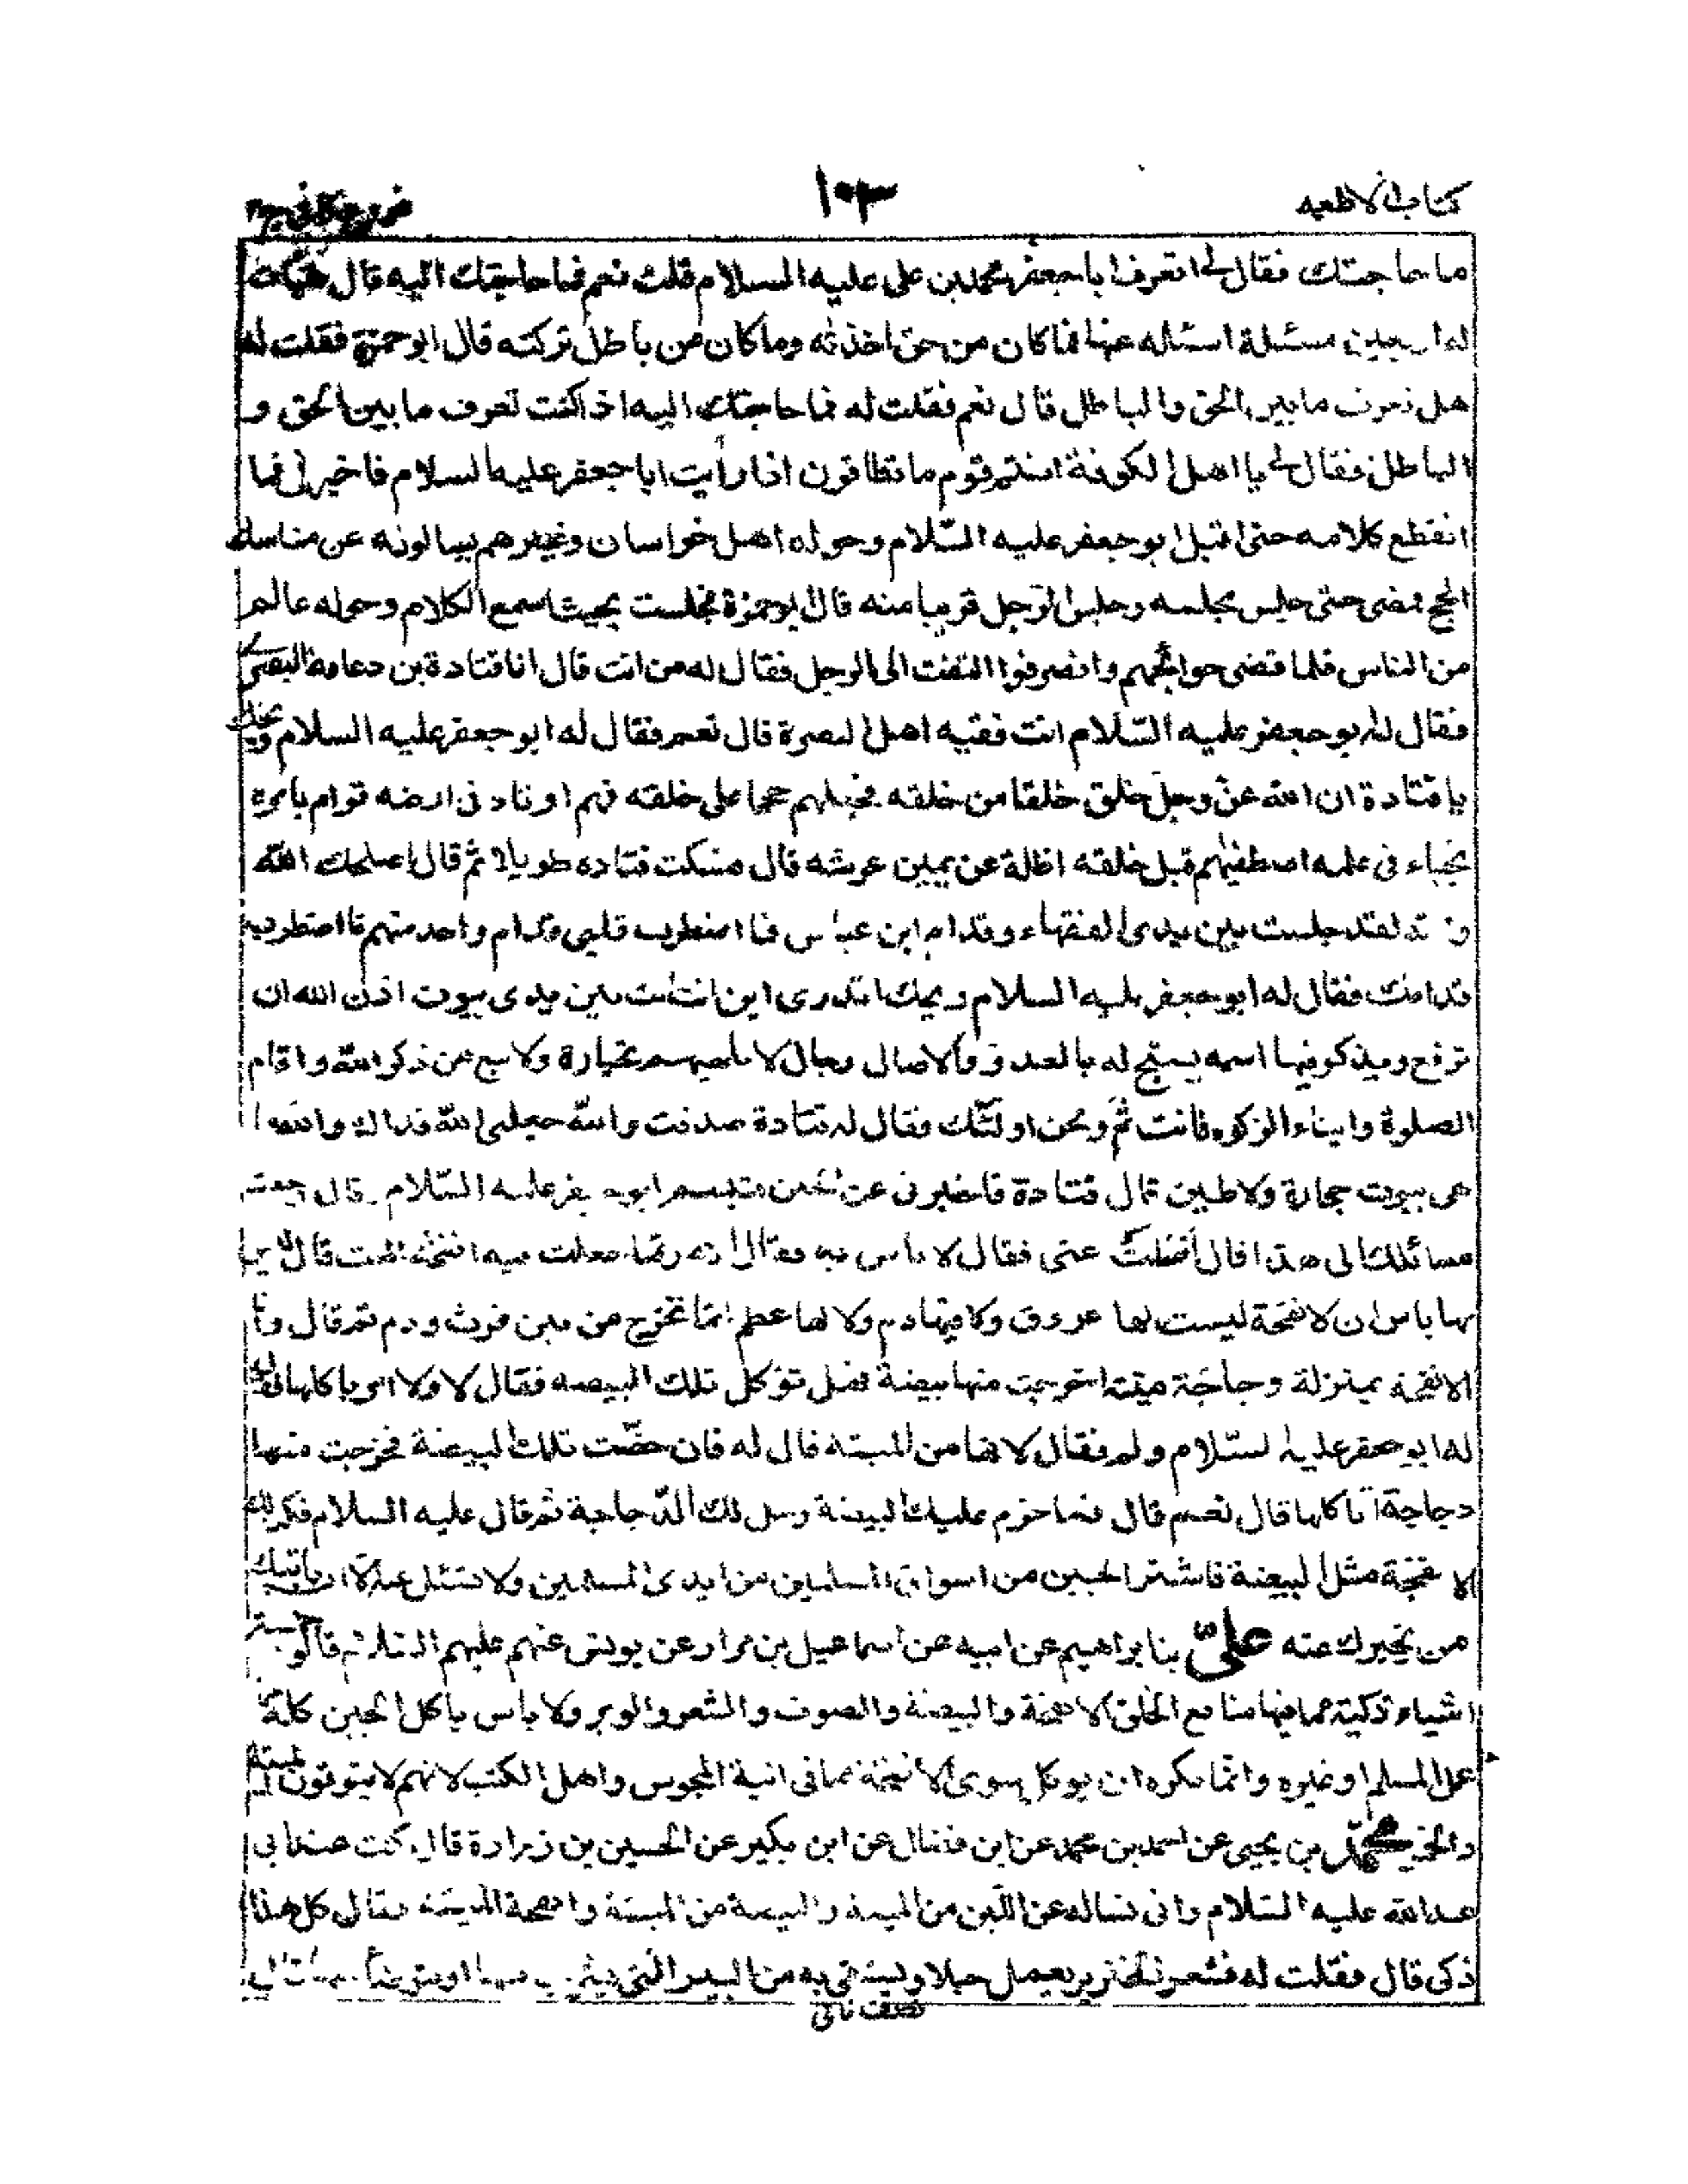 كتاب الاطعمه
١٠٣
فروع كافى ج٢
ما حاجتك فقال لى اتعرف ابا جعفر محمد بن على عليه السلام قلت نعم فما حاجتك اليه قال هيأت
له اربعين مسئلة اسئله عنها فما كان من حق اخذته وما كان من باطل تركته قال ابو حمزة فقلت له
هل تعرف ما بين الحق والباطل قال نعم فقلت له فما حاجتك اليه اذا كنت تعرف ما بين الحق و
الباطل فقال لى يا اهل الكوفة انتم قوم ما تطاقون اذا رأيت ابا جعفر عليه السلام فاخبرنى فما
انقطع كلامه حتى اقبل ابو جعفر عليه السّلام وحوله اهل خراسان وغيرهم يسالونه عن مناسك
الحج فمضى حتى جلس مجلسه وجلس الرجل قريبا منه قال ابو حمزة فجلست بحيث اسمع الكلام وحوله عالم
من الناس فلما قضى حوائجهم وانصرفوا التفت الى الرجل فقال له من انت قال انا قتادة بن دعامة البصرى
فقال له ابو جعفر عليه السّلام انت فقيه اهل البصرة قال نعم فقال له ابو جعفر عليه السلام ويحك
يا قتادة ان الله عزّ وجلّ خلق خلقا من خلقه فجعلهم حججا على خلقه فهم اوتاد فى ارضه قوام بامره
نجباء فى علمه اصطفيهم قبل خلقه اظلة عن يمين عرشه قال فسكت قتاده طويلا ثم قال اصلحك الله
والله لقد جلست بين يدى الفقهاء وقدام ابن عباس فما اضطرب قلبى قدام واحد منهم ما اضطرب
قدامك فقال له ابو جعفر عليه السلام ويحك اتدرى اين انت انت بين يدى بيوت اذن الله ان
ترفع ويذكر فيها اسمه يسبح له بالغدو والاصال رجال لا تلهيهم تجارة ولا بيع عن ذكر الله واقام
الصلوة وايتاء الزكوه فانت ثمّ ونحن اولئك فقال له قتادة صدقت والله جعلنى الله فداك والله ما
هى بيوت حجارة ولا طين قال قتادة فاخبرنى عن الجبن فتبسم ابو جعفر عليه السّلام قال رجعت
مسائلك الى هذا قال ضلّت عنى فقال لا باس به فقال انه ربّما جعلت فيه انفحة الميت قال ليس
بها باس ان الانفحة ليست لها عروق ولا فيها دم ولا لها عظم انما تخرج من بين فرث ودم ثم قال وانّما
الانفحة بمنزلة دجاجة ميتة اخرجت منها بيضة فهل تؤكل تلك البيضه فقال لا ولا امر باكلها فقال
له ابو جعفر عليه السّلام ولم فقال لانها من الميتة قال له فان حضّنت تلك البيضة فخرجت منها
دجاجة اتاكلها قال نعم قال فما حرم عليك البيضة وحلل لك الدّجاجة ثم قال عليه السلام فكذلك
الانفحة مثل البيضة فاشتر الجبن من اسواق المسلمين من ايدى المسلمين ولا تسئل عنه الّا ان ياتيك
من يخبرك عنه علىّ بن ابراهيم عن ابيه عن اسماعيل بن مرار عن يونس عنهم عليهم السّلام قالوا خمسة
اشياء ذكيّة مما فيها منافع الخلق الانفحة والبيضة والصوف والشعر والوبر ولا باس باكل الجبن كلّه ممّا
عمله المسلم او غيره وانّما يكره ان يوكل سوى الانفحة مما فى انية المجوس واهل الكتب لانهم لا يتوقون الميتة
والخمر محمّد بن يحيى عن احمد بن محمد عن ابن فضال عن ابن بكير عن الحسين بن زرارة قال كنت عند ابى
عبدالله عليه السّلام وابى يساله عن اللّبن من الميتة والبيضة من الميتة وانفحة الميتة فقال كل هذا
ذكى قال فقلت له فشعر الخنزير يعمل حبلا ويستقى به من البير التى يشرب منها او يتوضأ
نصف ثانى